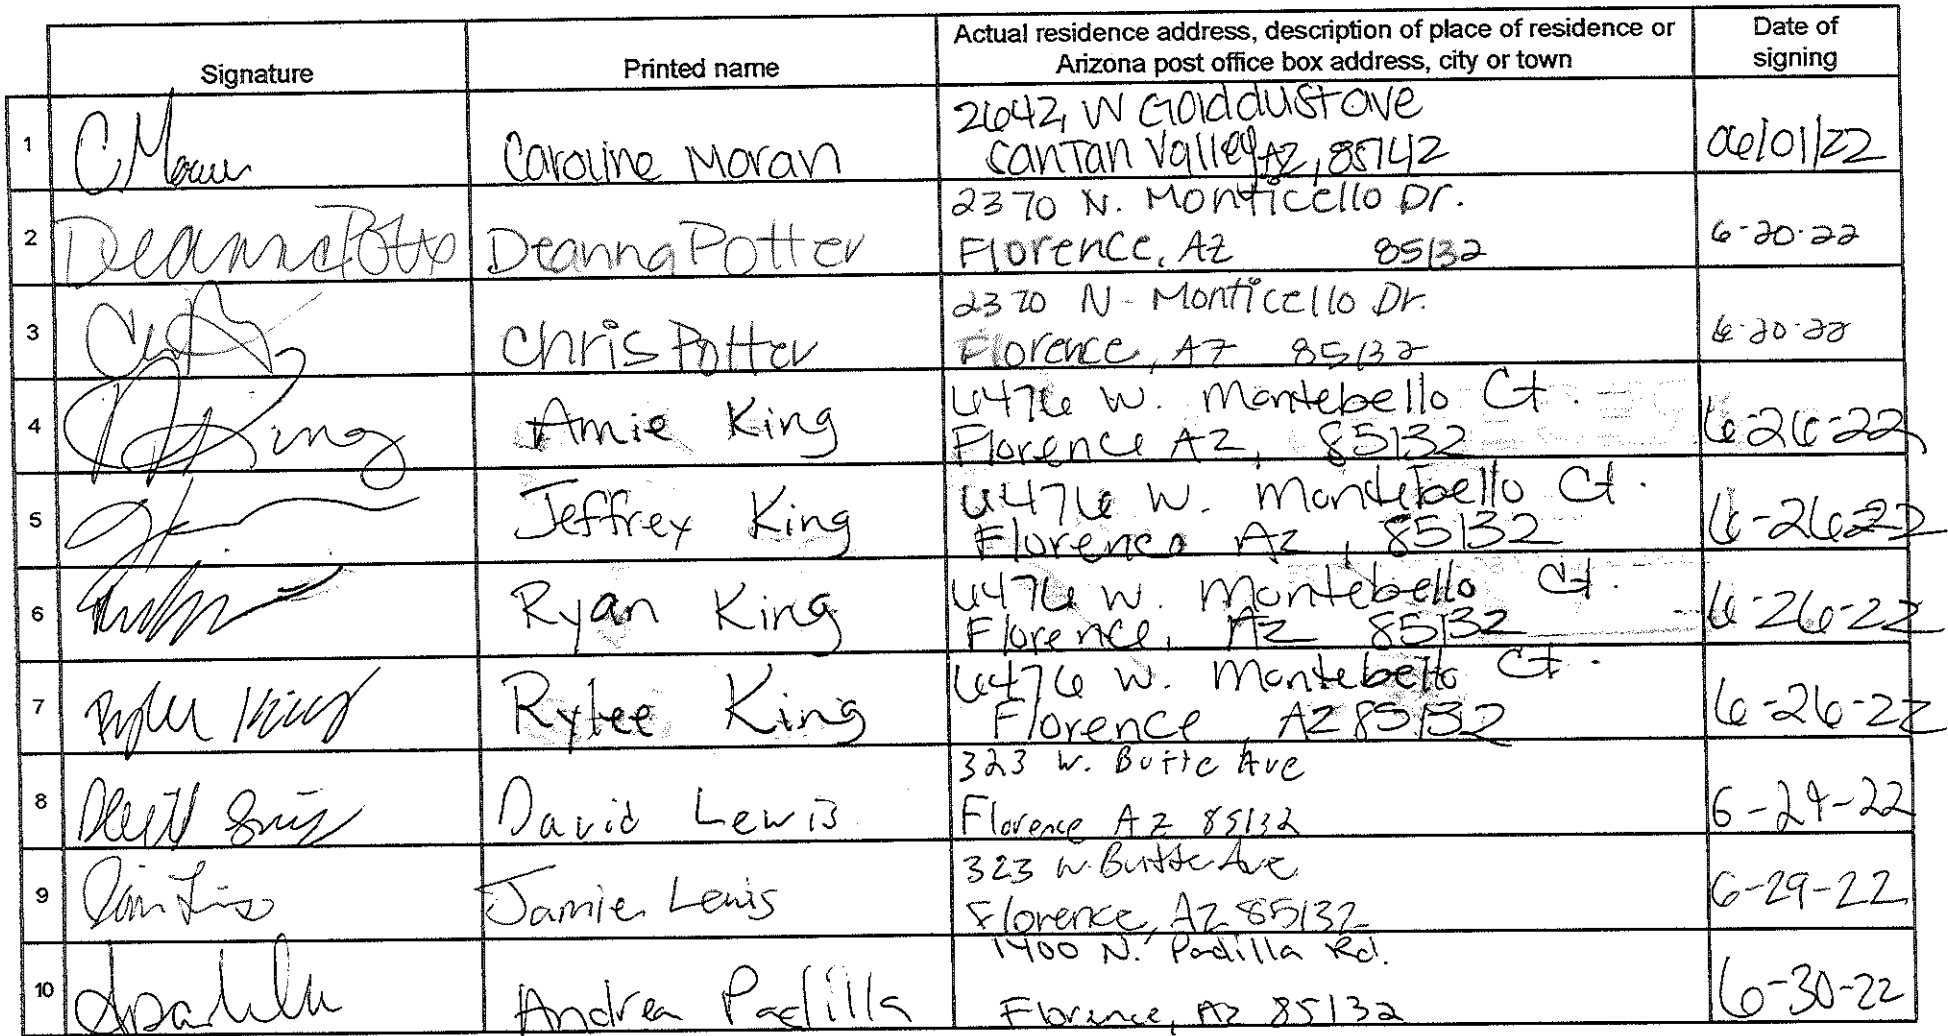 Signature
Printed name
Actual residence address, description of place of residence or
Arizona post office box address, city or town
Date of
signing
1
C Moran
Caroline Moran
2642, W Golddust ave
San Tan Valley AZ, 85142
06/01/22
2
Deanna Potter
Deanna Potter
2370 N. Monticello Dr.
Florence, AZ 85132
6-20-22
3
Chris Potter
2370 N- Monticello Dr.
Florence, AZ 85132
6-20-22
4
King
Amie King
6476 W. Montebello Ct.
Florence AZ, 85132
6-26-22
5
Jeffrey King
6476 W. Montebello Ct.
Florence AZ, 85132
6-26-22
6
Ryan King
6476 W. Montebello Ct.
Florence, AZ 85132
6-26-22
7
Rylee King
Rylee King
6476 W. Montebello Ct.
Florence AZ 85132
6-26-22
8
David Lewis
323 W. Butte Ave
Florence AZ 85132
6-29-22
9
Jamie Lewis
323 W. Butte Ave
Florence, AZ 85132
6-29-22
10
Andrea Padilla
1400 N. Padilla Rd.
Florence, AZ 85132
6-30-22